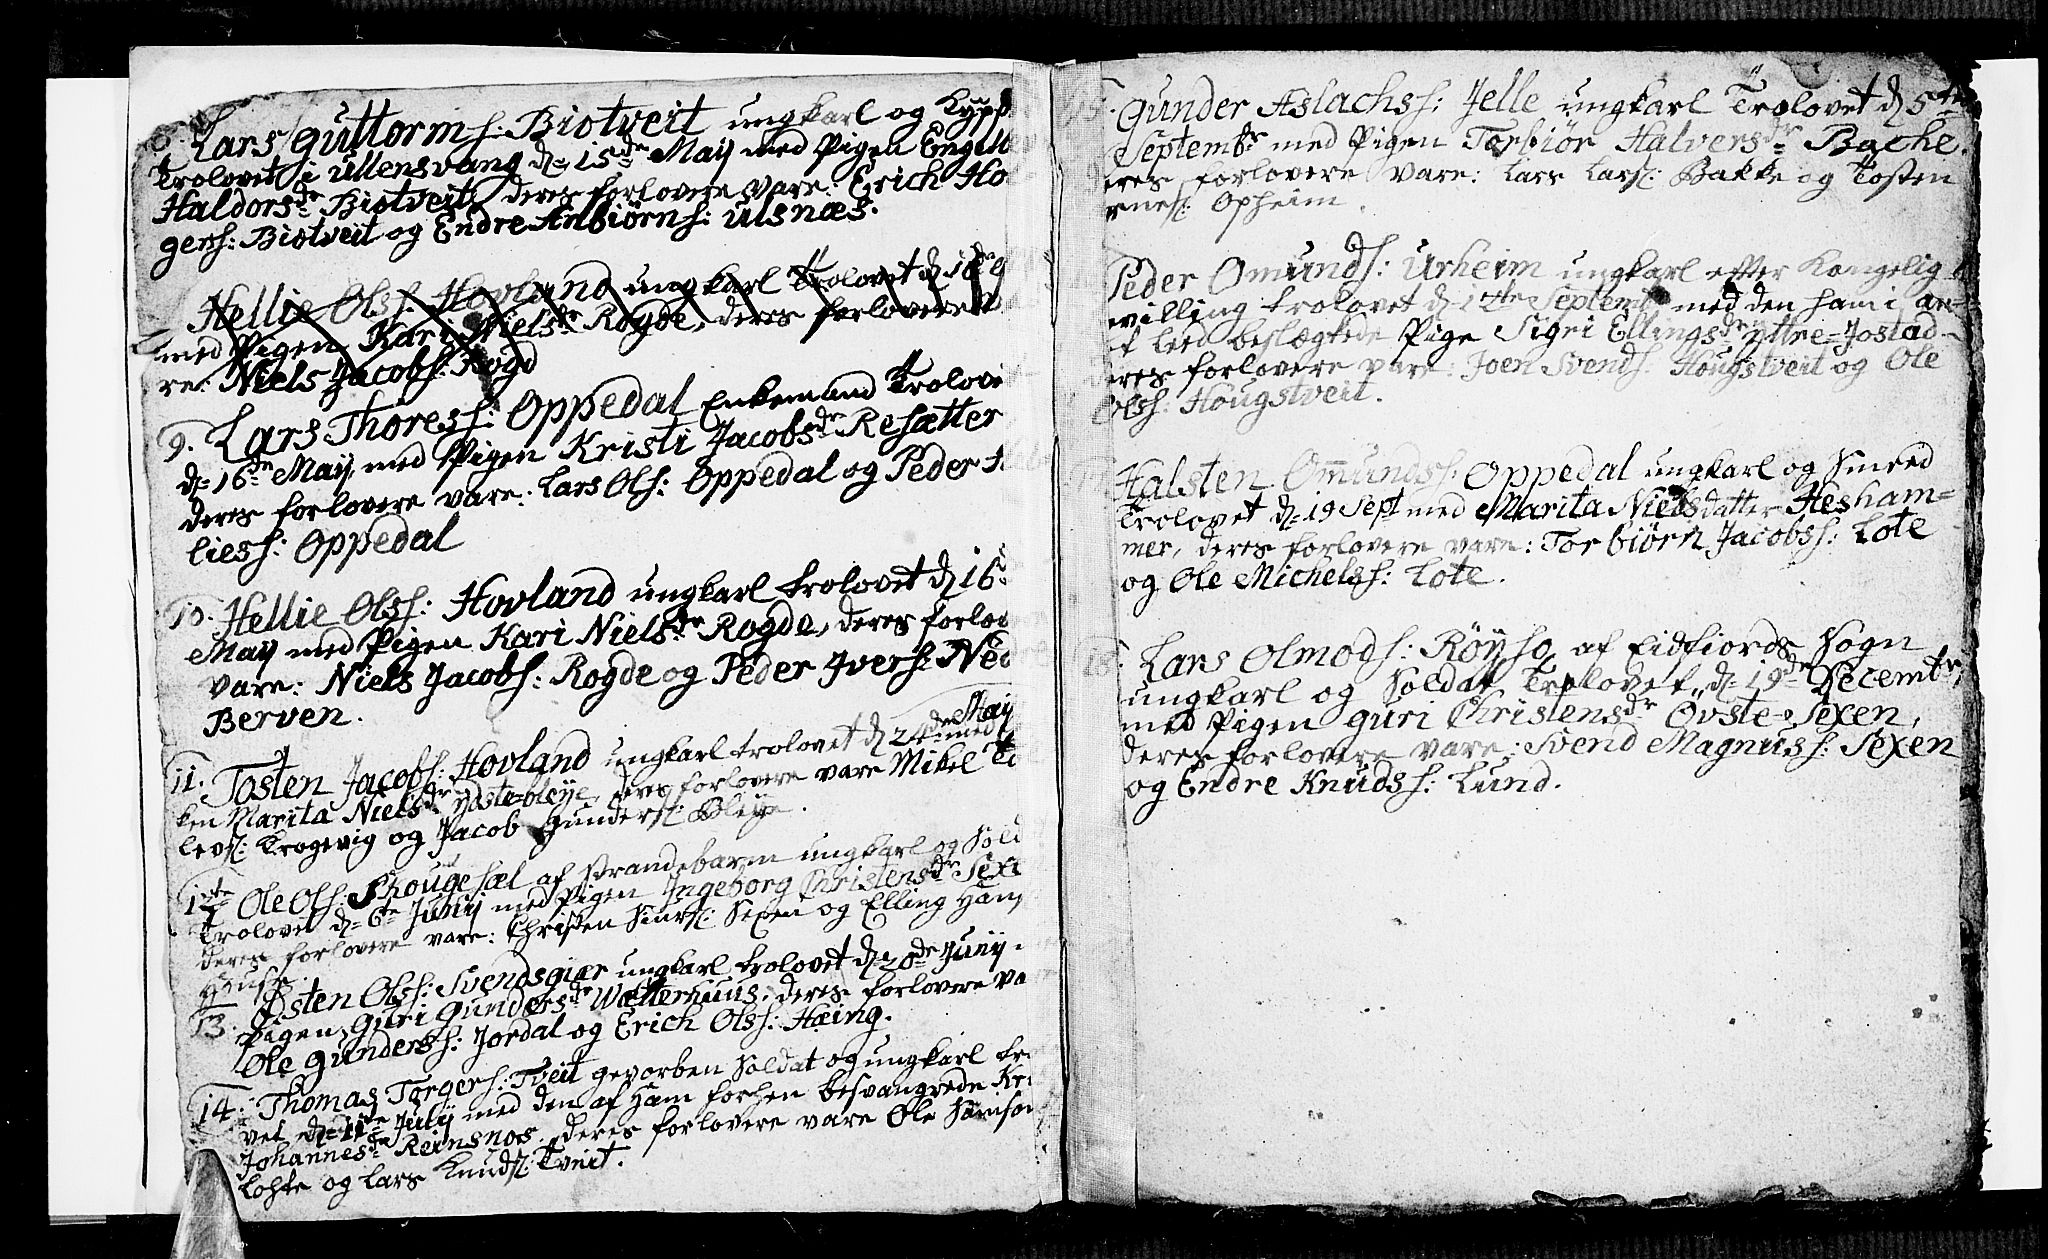 8. Lars Guttormss: Biotveit ungkarl og
Trolovet i Ullensvang d= 15de May med Pigen
Haldorsdr Biotveit, deres forlovere vare: Erich
gerss: Biotveit og Endre Anbiørns: Ulsnæs.
Hellie Olss: Hovland ungkarl Trolovet d
med Pigen Kari Nielsdr Rogde, deres forlovere
re: Niels Jacobs: Rogd
9. Lars Thoress: Oppedal Enkemand Trolovet
d= 16de May, med Pigen Kristi Jacobsdr Resætter
deres forlovere vare: Lars Ols: Oppedal og Peder
liess: Oppedal
10. Hellie Olss: Hovland ungkarl trolovet d 16
May med Pigen Kari Nielsdr Rogde, deres forlov
vare: Niels Jacobs: Rogde og Peder Ivers: Ned
Berven.
11. Tosten Jacobs: Hovland ungkarl trolovet d 24de May med
ken Marita Nielsdr Ydste=bleÿe, deres forlovere vare Mikel
levs: Krogevig og Jacob Gunders: Bleÿe.
12te Ole Ols: Skougesæl af Strandebarm ungkarl og Sold
Trolovet d= 6te Junÿ med Pigen Ingeborg Christensdr Sexe
deres forlovere vare: Christen Siurs: Sexen og Elling Hans
Huse.
13. Østen Olss: Svendsgiær ungkarl trolovet d= 20de Junÿ
Pigen Guri Gundersdr Wætterhuus. deres forlovere va
Ole Gunderss: Jordal og Erich Olss: Hæing.
14. Thomas Torgers: Tveit gevorben Soldat og ungkarl tro
vet d= 11te Julÿ med den af ham forhen besvangrede Kri
Johannesdr Reinsnos. deres forlovere vare Ole Samson
Lohte og Lars Knuds: Tveit.
15. Gunder Aslachss: Jelle ungkarl Trolovet d 5te
Septembr med Pigen Torbiør Halversdr Bache.
eres forlovere vare: Lars Lars: Bakke og Tosten
rnes: Opheim.
Peder Omunds: Urheim ungkarl efter Kongelig
villing trolovet d= Septembr med den ham i
t leed beslægtede Pige Sigri Ellingsdr Ÿttre=Jostad
eres forlovere vare: Joen Svends: Hougstveit og Ole
Olss: Hougstveit.
17. Halsten Omundss: Oppedal ungkarl og Smeed
Trolovet d= 19 Sept med Marita Nielsdatter Hesham=
mer, deres forlovere vare: Torbiørn Jacobss: Lote
og Ole Michelss: Lote.
18. Lars Olmods: Røÿso af Eidfiords Sogn
ungkarl og Soldat Trolovet d= 19de Decembr,
med Pigen Guri Christensdr Øvste=Sexen,
deres forlovere vare: Svend Magnuss: Sexen
og Endre Knudss: Lund.